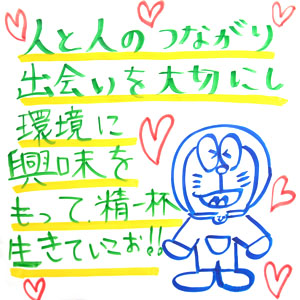 人と人のつながり
出会いを大切にし
環境に
興味を
もって、精一杯
生きていこお!!